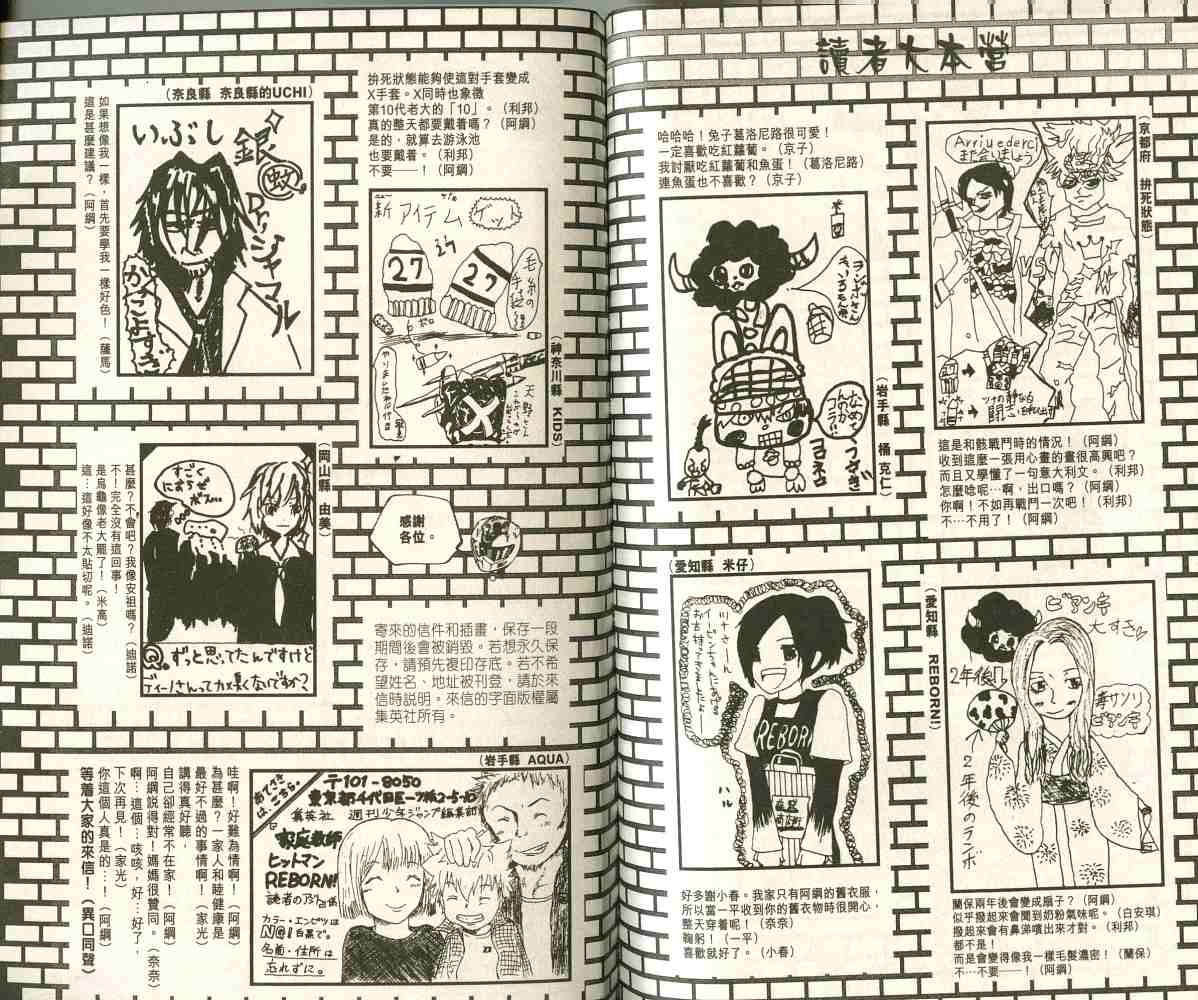 讀者大本營
(京都府 拚死狀態)
Arrivederci
また会いましょう
VS
這是和骸戰鬥時的情況！（阿綱）
收到這麼一張用心畫的畫很高興吧？
而且又學懂了一句意大利文。（利邦）
怎麼唸呢…啊，出口嗎？（阿綱）
你啊！不如再戰鬥一次吧！（利邦）
不…不用了！（阿綱）
哈哈哈！兔子葛洛尼路很可愛！
一定喜歡吃紅蘿蔔。（京子）
我討厭吃紅蘿蔔和魚蛋！（葛洛尼路）
連魚蛋也不喜歡？（京子）
(岩手縣 橘 克仁)
(愛知縣 REBORN!)
ビアンキ
大すき
2年後
毒サソリ
ビアンキ
2年後のランボ
蘭保兩年後會變成扇子？（阿綱）
似乎撥起來會聞到奶粉氣味呢。（白安琪）
撥起來會有鼻涕噴出來才對。（利邦）
都不是！
而是會變得像我一樣毛髮濃密！（蘭保）
不…不要——！（阿綱）
(愛知縣 米仔)
REBORN
ハル
好多謝小春。我家只有阿綱的舊衣服，
所以當一平收到你的舊衣物時很開心，
整天穿着呢！（奈奈）
鞠躬！（一平）
喜歡就好了。（小春）
拚死狀態能夠使這對手套變成
X手套。X同時也象徵
第10代老大的「10」。（利邦）
真的整天都要戴着嗎？（阿綱）
是的，就算去游泳池
也要戴着。（利邦）
不要——！（阿綱）
新アイテム
ゲット
27
27
毛糸の手袋
X
(神奈川縣 KIDS)
(奈良縣 奈良縣的UCHI)
いぶし銀
Dr.シャマル
かっこよすぎ
如果想像我一樣，首先要學我一樣好色！（薩馬）
這是甚麼建議？（阿綱）
(岡山縣 由美)
すごく
にあうぜ
ボス…
Q。ずっと思ってたんですけど
ディーノさんってカメ臭くないですか？
甚麼？不會吧？我像安祖嗎？（迪諾）
不！完全沒有這回事！
是烏龜像老大罷了！（米高）
這…這好像不太貼切呢。（迪諾）
感謝
各位。
寄來的信件和插畫，保存一段
期間後會被銷毀。若想永久保
存，請預先複印存底。若不希
望姓名、地址被刊登，請於來
信時說明。來信的字面版權屬
集英社所有。
(岩手縣 AQUA)
あてさきはこちら。
〒101-8050
東京都千代田区一ツ橋2-5-10
集英社 週刊少年ジャンプ編集部
家庭教師
ヒットマン
REBORN!
読者のアジト係
カラー・エンピツは
NG！白黒で。
名前・住所は
忘れずに。
哇啊！好難為情啊！（阿綱）
為甚麼？一家人和睦健康是
最好不過的事情啊！（家光）
講得真好聽，
自己卻經常不在家！（阿綱）
阿綱說得對！媽媽很贊同。（奈奈）
啊…這個…咳咳，好…好了，
下次再見！（家光）
你這個人真是的…！（阿綱）
等着大家的來信！（異口同聲）